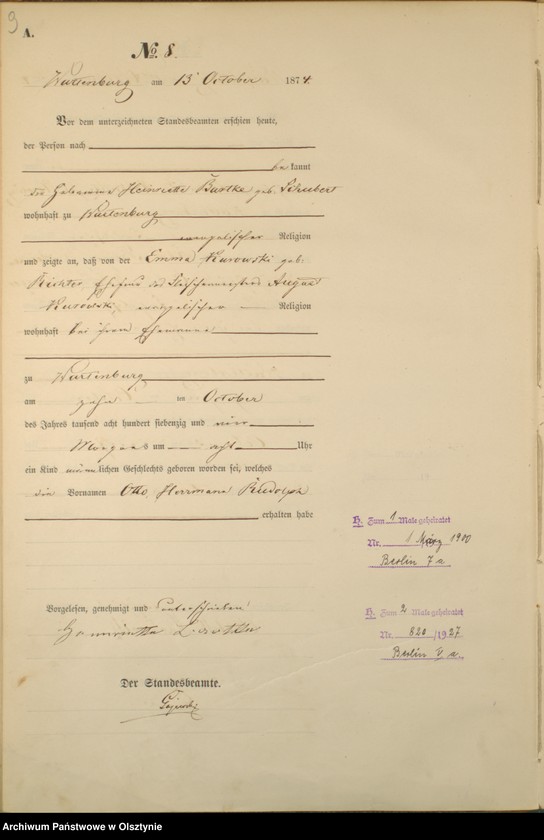 9
A.
No. 8.
Wartenburg am 13 October 1874.
Vor dem unterzeichneten Standesbeamten erschien heute,
der Person nach
bekannt
die Hebamme Henriette Bartke geb. Schubert
wohnhaft zu Wartenburg
evangelischer Religion
und zeigte an, daß von der Emma Kurowski geb.
Richter, Ehefrau des Fleischermeisters August
Kurowski, evangelischer Religion
wohnhaft bei ihrem Ehemanne
zu Wartenburg
am zehn ten October
des Jahres tausend acht hundert siebenzig und vier
Morgens um acht Uhr
ein Kind männlichen Geschlechts geboren worden sei, welches
die Vornamen Otto, Herrmann Rudolph
erhalten habe
Vorgelesen, genehmigt und unterschrieben
Der Standesbeamte.
H. Zum 1 Male geheiratet
Nr. 1 März 1900
Berlin 7a
H. Zum 2 Male geheiratet
Nr. 820/1927
Berlin V a.
Archiwum Państwowe w Olsztynie